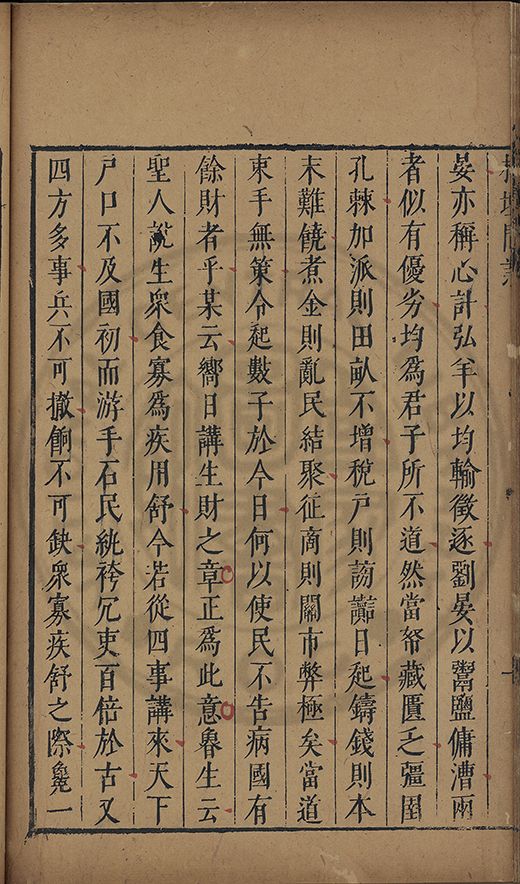 晏亦稱心計弘羊以均輸徵逐劉晏以鬻鹽傭漕兩
者似有優劣均為君子所不道然當帑藏匱乏疆圉
孔棘加派則田畝不增稅戶則謗讟日起鑄錢則本
末難饒煮金則亂民結聚征商則關市弊極矣當道
束手無策令起數子於今日何以使民不告病國有
餘財者乎某云嚮日講生財之章正為此意魯生云
聖人說生眾食寡為疾用舒今若從四事講來天下
戶口不及國初而游手石民紈袴冗吏百倍於古又
四方多事兵不可撤餉不可缺眾寡疾舒之際毚一